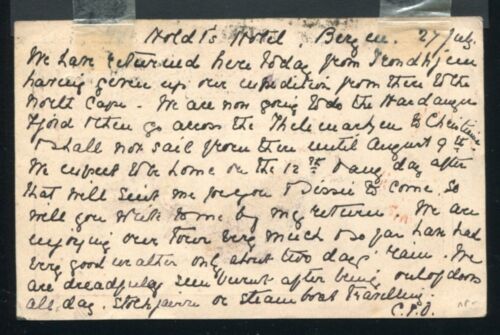 Holdt's Hotel, Bergen. 27 July.
We have returned here today from Trondhjem
having given up our expedition from there to the
North Cape. We are now going to do the Hardanger
Fjord & then go across the Thelemarken to Christiania
& shall not sail from there until August 9th
We expect to be home on the 12th & any day after
that will suit me for you & Dossie to come, so
will you write to me by my return. We are
enjoying our tour very much & so far have had
very good weather only about two days rain. We
are dreadfully sunburnt after being out of doors
all day. or steamboat travelling.
C.F.O.